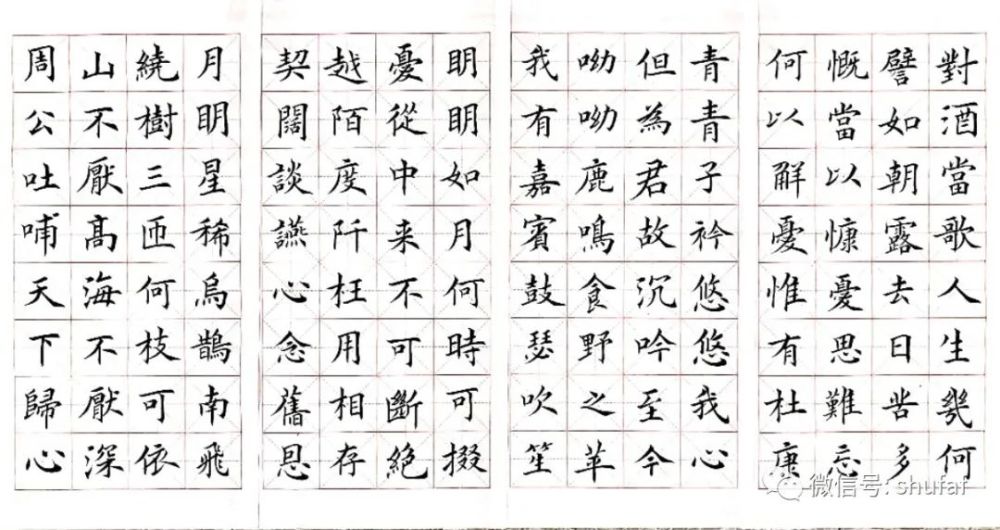 對酒當歌人生幾何
譬如朝露去日苦多
慨當以慷憂思難忘
何以解憂惟有杜康
青青子衿悠悠我心
但為君故沉吟至今
呦呦鹿鳴食野之苹
我有嘉賓鼓瑟吹笙
明明如月何時可掇
憂從中来不可斷絶
越陌度阡枉用相存
契闊談讌心念舊恩
月明星稀烏鵲南飛
繞樹三匝何枝可依
山不厭高海不厭深
周公吐哺天下歸心
微信号: shufaf